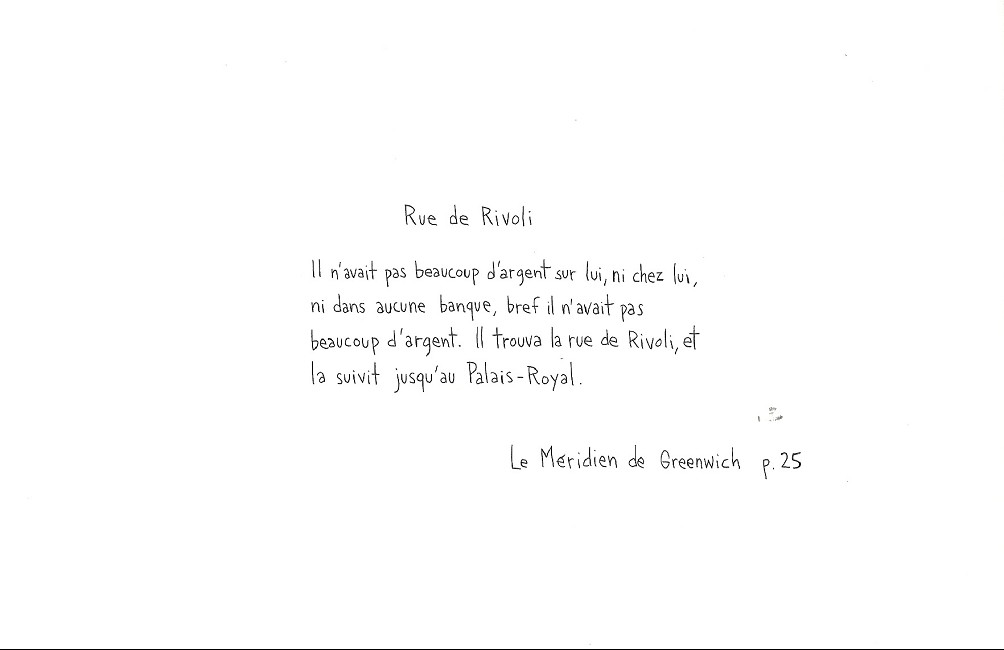 Rue de Rivoli
Il n'avait pas beaucoup d'argent sur lui, ni chez lui,
ni dans aucune banque, bref il n'avait pas
beaucoup d'argent. Il trouva la rue de Rivoli, et
la suivit jusqu'au Palais-Royal.
Le Méridien de Greenwich p. 25